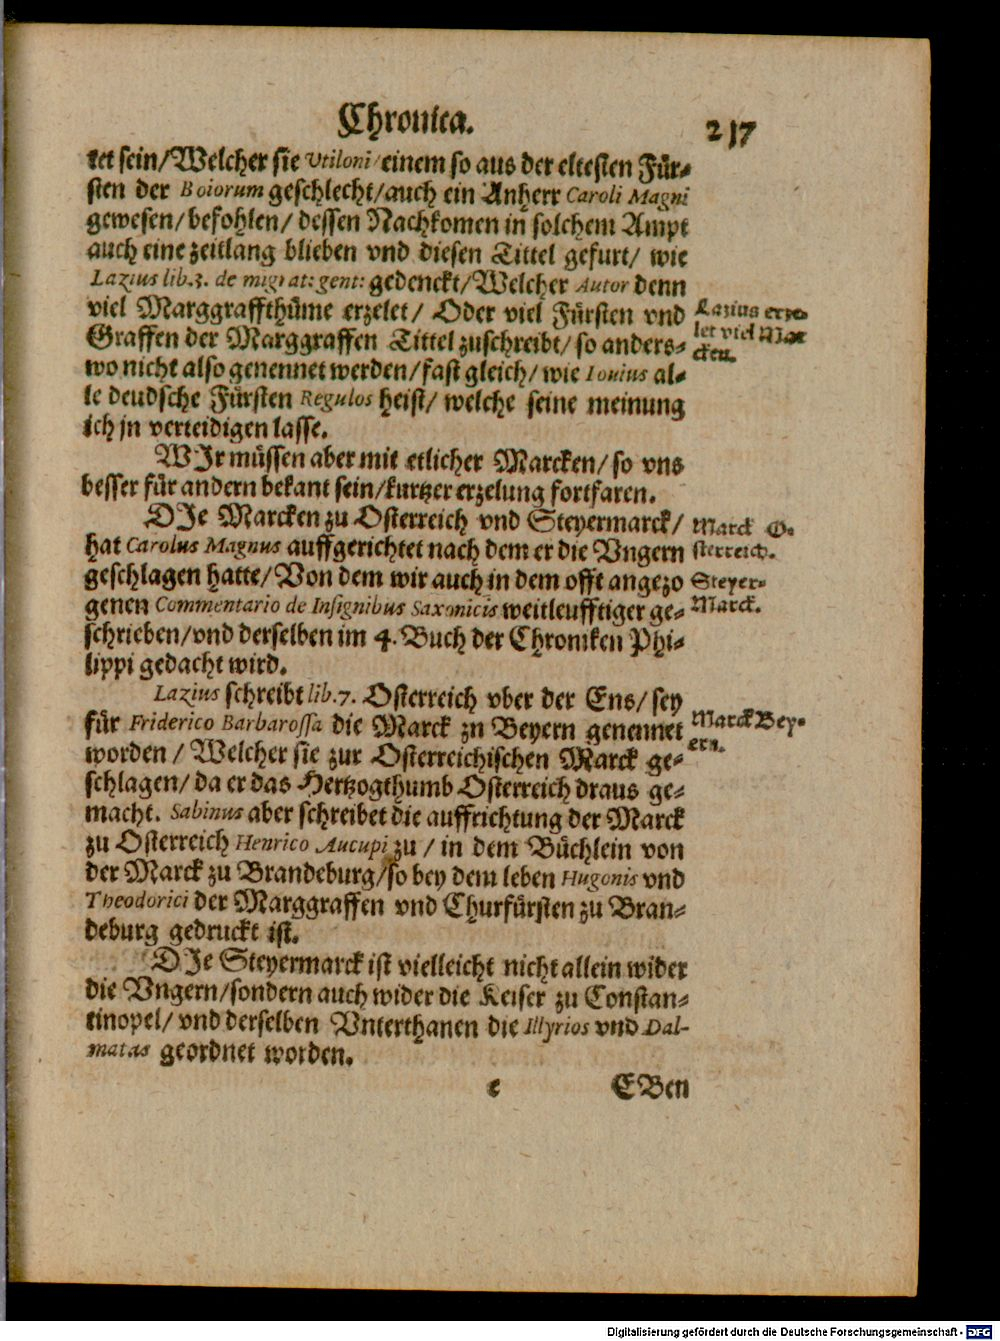 Chronica.
217
tet sein/Welcher sie Vtiloni/einem so aus der eltesten Für-
sten der Boiorum geschlecht/auch ein Anherr Caroli Magni
gewesen/befohlen/ dessen Nachkomen in solchem Ampt
auch eine zeitlang blieben vnd diesen Tittel gefurt/ wie
Lazius lib.3. de migrat: gent: gedenckt/Welcher Autor denn
viel Marggraffthüme erzelet/ Oder viel Fürsten vnd
Lazius erze-
Graffen der Marggraffen Tittel zuschreibt/so anders-
let viel Mar
cken.
wo nicht also genennet werden/fast gleich/ wie Iouius al-
le deudsche Fürsten Regulos heist/ welche seine meinung
ich jn verteidigen lasse.
WJr müssen aber mit etlicher Marcken/ so vns
besser für andern bekant sein/kurtzer erzelung fortfaren.
DJe Marcken zu Osterreich vnd Steyermarck/
Marck O-
hat Carolus Magnus auffgerichtet nach dem er die Vngern
sterreich.
geschlagen hatte/Von dem wir auch in dem offt angezo
Steyer-
genen Commentario de Insignibus Saxonicis weitleufftiger ge-
Marck.
schrieben/vnd derselben im 4. Buch der Chroniken Phi-
lippi gedacht wird.
Lazius schreibt lib.7. Osterreich vber der Ens/sey
für Friderico Barbarossa die Marck zu Beyern genennet
Marck Bey-
ern.
worden/ Welcher sie zur Osterreichischen Marck ge-
schlagen/ da er das Hertzogthumb Osterreich draus ge-
macht. Sabinus aber schreibet die auffrichtung der Marck
zu Osterreich Henrico Aucupi zu / in dem Büchlein von
der Marck zu Brandeburg/so bey dem leben Hugonis vnd
Theodorici der Marggraffen vnd Churfürsten zu Bran-
deburg gedruckt ist.
DJe Steyermarck ist vielleicht nicht allein wider
die Vngern/sondern auch wider die Keiser zu Constan-
tinopel/ vnd derselben Vnterthanen die Illyrios vnd Dal-
matas geordnet worden.
e
EBen
Digitalisierung gefördert durch die Deutsche Forschungsgemeinschaft - DFG